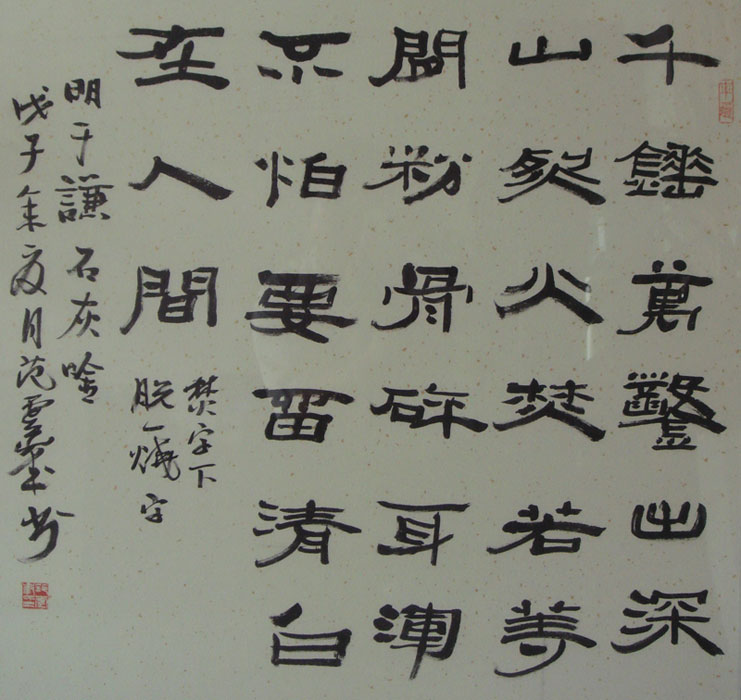 千錘萬鑿出深
山烈火焚若等
閒粉骨碎身渾
不怕要留清白
在人間
焚字下
脫一燒字
明于謙石灰吟
戊子年夏月范雲书